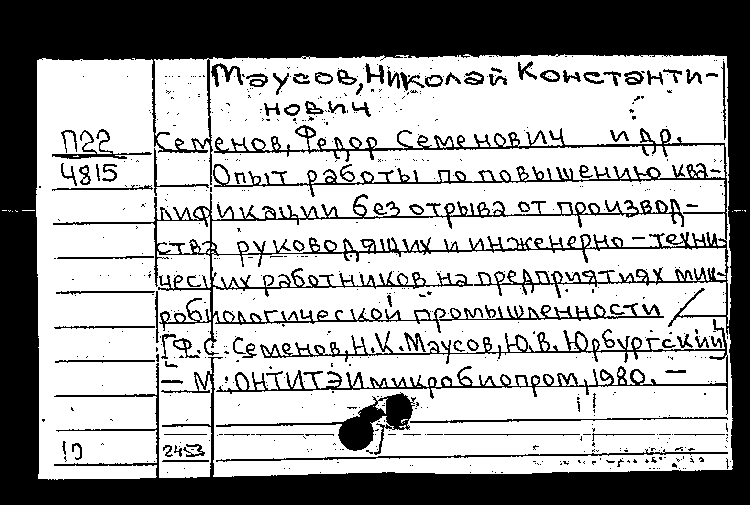 Маусов, Николай Константи-
нович
П22 Семенов, Федор Семенович и др.
4815 Опыт работы по повышению ква-
лификации без отрыва от производ-
ства руководящих и инженерно-техни-
ческих работников на предприятиях мик-
робиологической промышленности /
[Ф.С. Семенов, Н.К. Маусов, Ю.В. Юрбургский]
— М.: ОНТИТЭИмикробиопром, 1980. —
10 2453